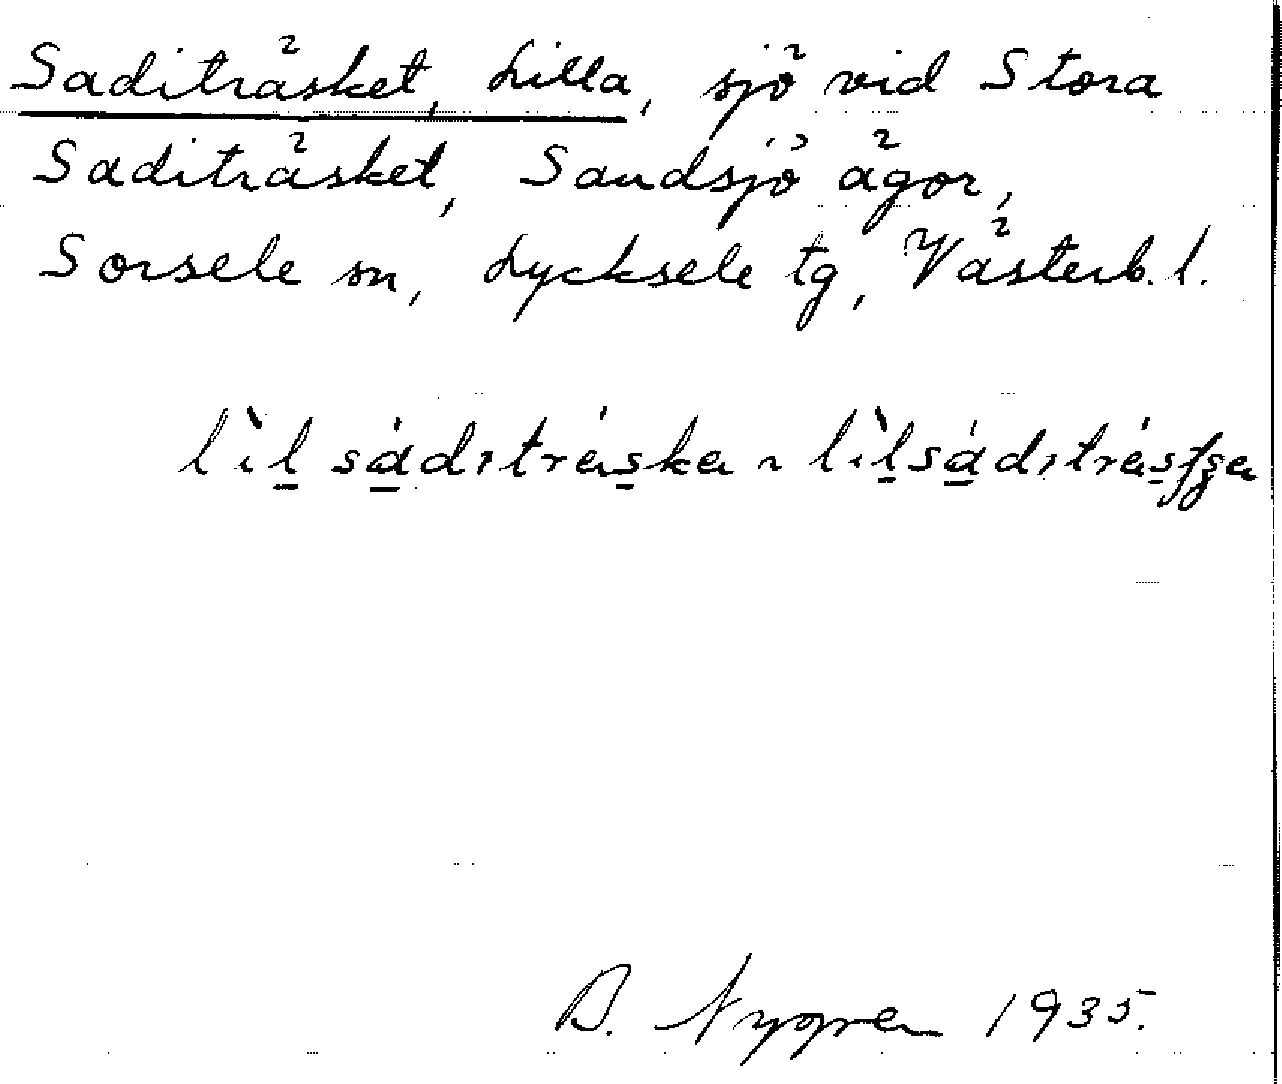 Saditräsket, Lilla, sjö vid Stora
Saditräsket, Sandsjö ägor,
Sorsele sn, Lycksele tg, Västerb. l.
lìl sádıtrǽska ~ lìlsádıtrǽsʃʂa
B. Nygren 1935.